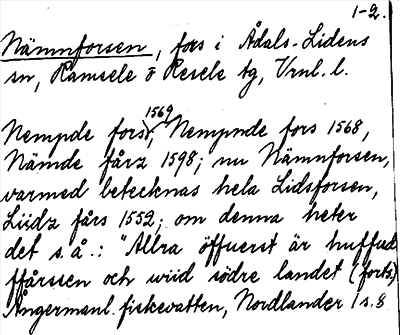 1-2.
Nämnforsen, fors i Ådals-Lidens
sn, Ramsele o Resele tg, Vrnl. l.
1569
Nempde fors, Nempnde fors 1568,
Nämde fårz 1598; nu Nämnforsen,
varmed betecknas hela Lidsforsen,
Liidz fårs 1552; om denna heter
det s. å.: "Allra öffuerst är huffud
ffårssen och wiid södre landet (forts.)
Ångermanl. fiskevatten, Nordlander 1 s. 8